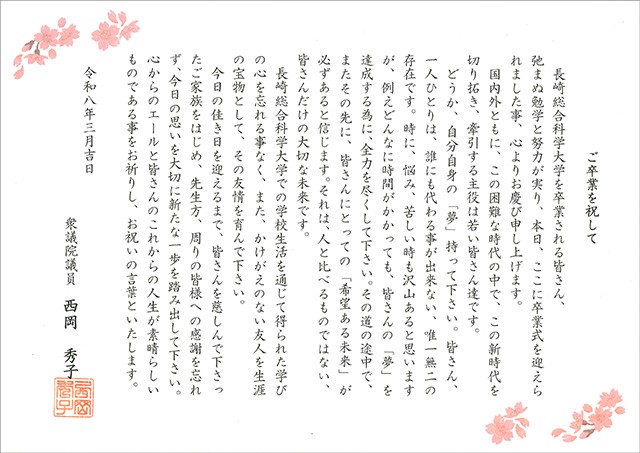 ご卒業を祝して
長崎総合科学大学を卒業される皆さん、
弛まぬ勉学と努力が実り、本日、ここに卒業式を迎えら
れました事、心よりお慶び申し上げます。
国内外ともに、この困難な時代の中で、この新時代を
切り拓き、牽引する主役は若い皆さん達です。
どうか、自分自身の「夢」持って下さい。皆さん、
一人ひとりは、誰にも代わる事が出来ない、唯一無二の
存在です。時に、悩み、苦しい時も沢山あると思います
が、例えどんなに時間がかかっても、皆さんの「夢」を
達成する為に、全力を尽くして下さい。その道の途中で、
またその先に、皆さんにとっての「希望ある未来」が
必ずあると信じます。それは、人と比べるものではない、
皆さんだけの大切な未来です。
長崎総合科学大学での学校生活を通じて得られた学び
の心を忘れる事なく、また、かけがえのない友人を生涯
の宝物として、その友情を育んで下さい。
今日の佳き日を迎えるまで、皆さんを慈しんで下さっ
たご家族をはじめ、先生方、周りの皆様への感謝を忘れ
ず、今日の思いを大切に新たな一歩を踏み出して下さい。
心からのエールと皆さんのこれからの人生が素晴らしい
ものである事をお祈りし、お祝いの言葉といたします。
令和八年三月吉日
衆議院議員 西岡 秀子
西岡
秀子